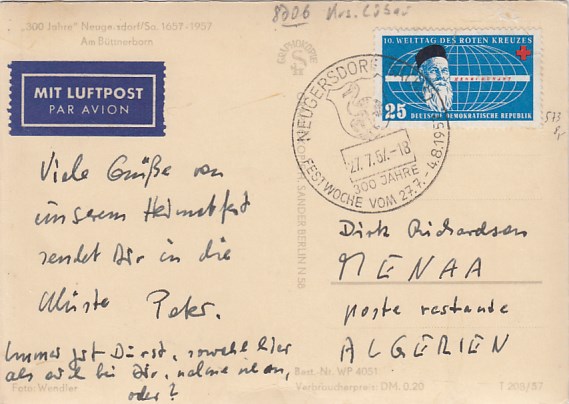 8706 Krs. Löbau
„300 Jahre" Neugersdorf/Sa. 1657-1957
Am Büttnerborn
MIT LUFTPOST
PAR AVION
10. WELTTAG DES ROTEN KREUZES
HENRI DUNANT
25 DEUTSCHE DEMOKRATISCHE REPUBLIK
NEUGERSDORF
27.7.57.-18
300 JAHRE
FESTWOCHE VOM 27.7.-4.8.195
573
Viele Grüße von
unserem Heimatfest
sendet Dir in die
Wüste Peter.
Immer gut Durst, sowohl hier
als auch bei Dir, nehme ich an,
oder?
Dirk Richardsen
MENAA
poste restante
ALGERIEN
SANDER BERLIN N 58
Foto: Wendler
Best.-Nr. WP 4051
Verbraucherpreis: DM. 0.20
T 209/57